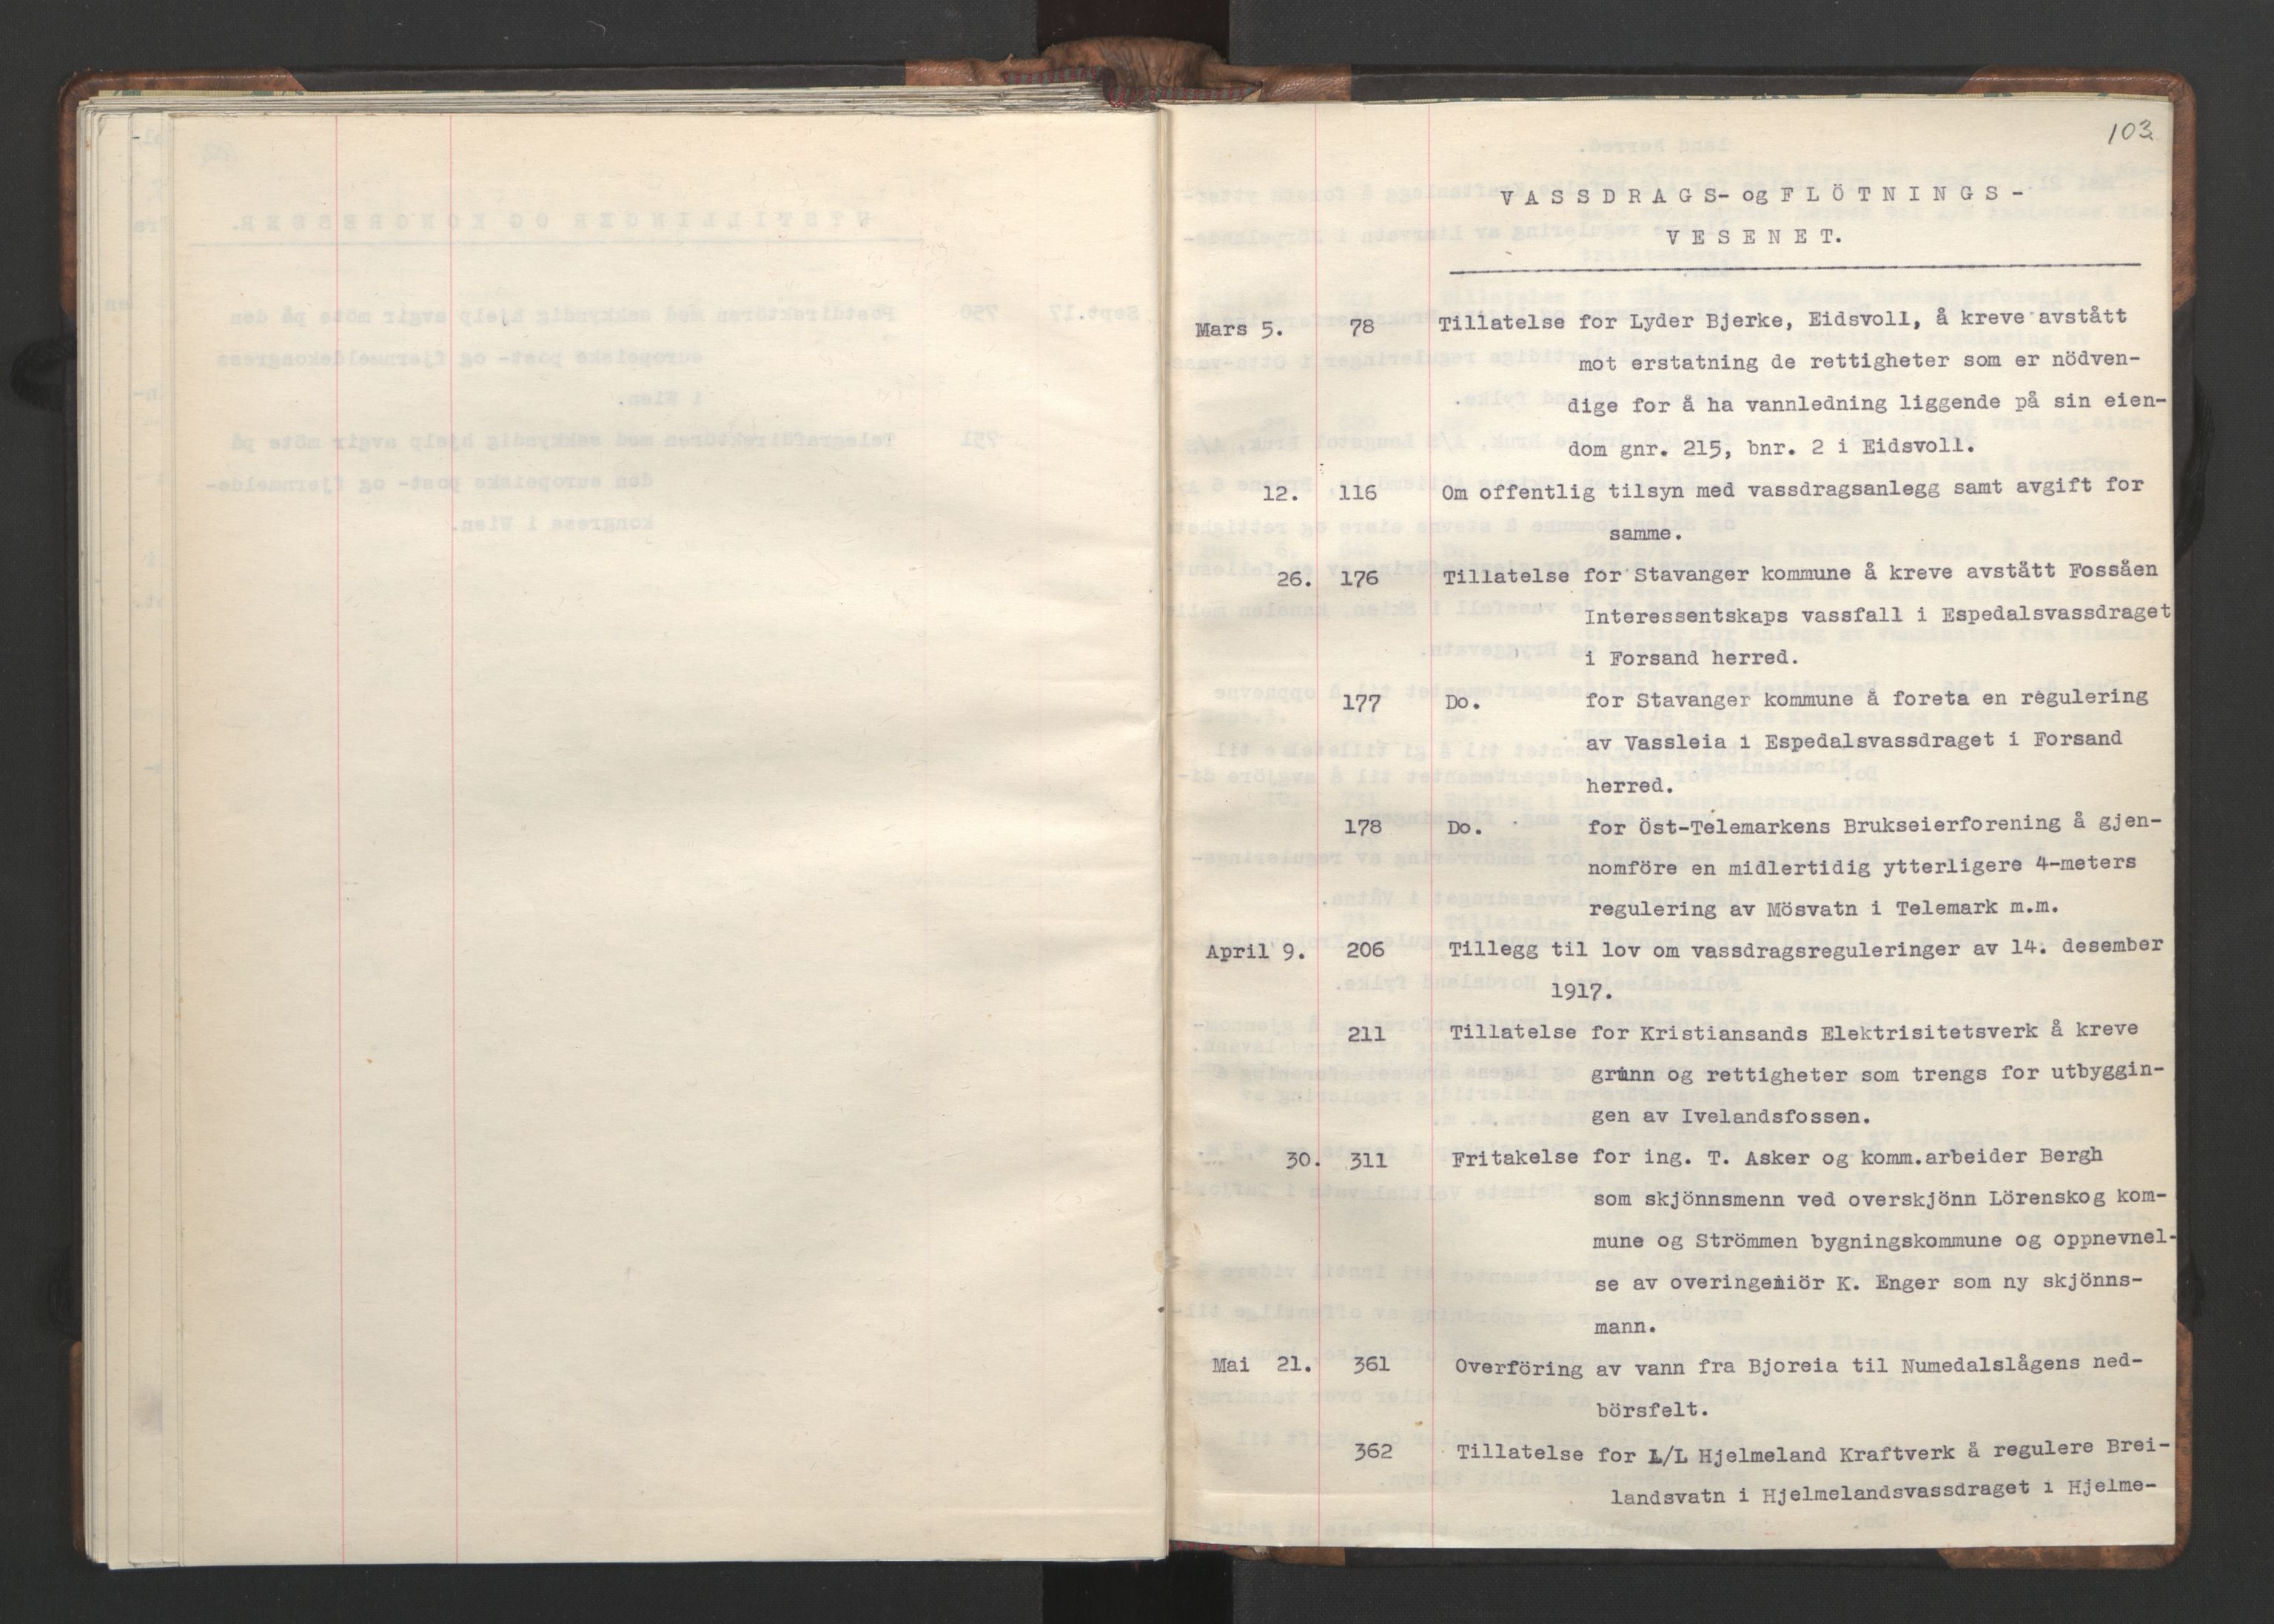 103
VASSDRAGS- og FLÖTNINGS-
VESENET.
Mars 5. 78 Tillatelse for Lyder Bjerke, Eidsvoll, å kreve avstått
mot erstatning de rettigheter som er nödven-
dige for å ha vannledning liggende på sin eien-
dom gnr. 215, bnr. 2 i Eidsvoll.
12. 116 Om offentlig tilsyn med vassdragsanlegg samt avgift for
samme.
26. 176 Tillatelse for Stavanger kommune å kreve avstått Fossåen
Interessentskaps vassfall i Espedalsvassdraget
i Forsand herred.
177 Do. for Stavanger kommune å foreta en regulering
av Vassleia i Espedalsvassdraget i Forsand
herred.
178 Do. for Öst-Telemarkens Brukseierforening å gjen-
nomföre en midlertidig ytterligere 4-meters
regulering av Mösvatn i Telemark m.m.
April 9. 206 Tillegg til lov om vassdragsreguleringer av 14. desember
1917.
211 Tillatelse for Kristiansands Elektrisitetsverk å kreve
grunn og rettigheter som trengs for utbyggin-
gen av Ivelandsfossen.
30. 311 Fritakelse for ing. T. Asker og komm.arbeider Bergh
som skjönnsmenn ved overskjönn Lörenskog kom-
mune og Strömmen bygningskommune og oppnevnel-
se av overingeniör K. Enger som ny skjönns-
mann.
Mai 21. 361 Overföring av vann fra Bjoreia til Numedalslågens ned-
börsfelt.
362 Tillatelse for L/L Hjelmeland Kraftverk å regulere Brei-
landsvatn i Hjelmelandsvassdraget i Hjelme-